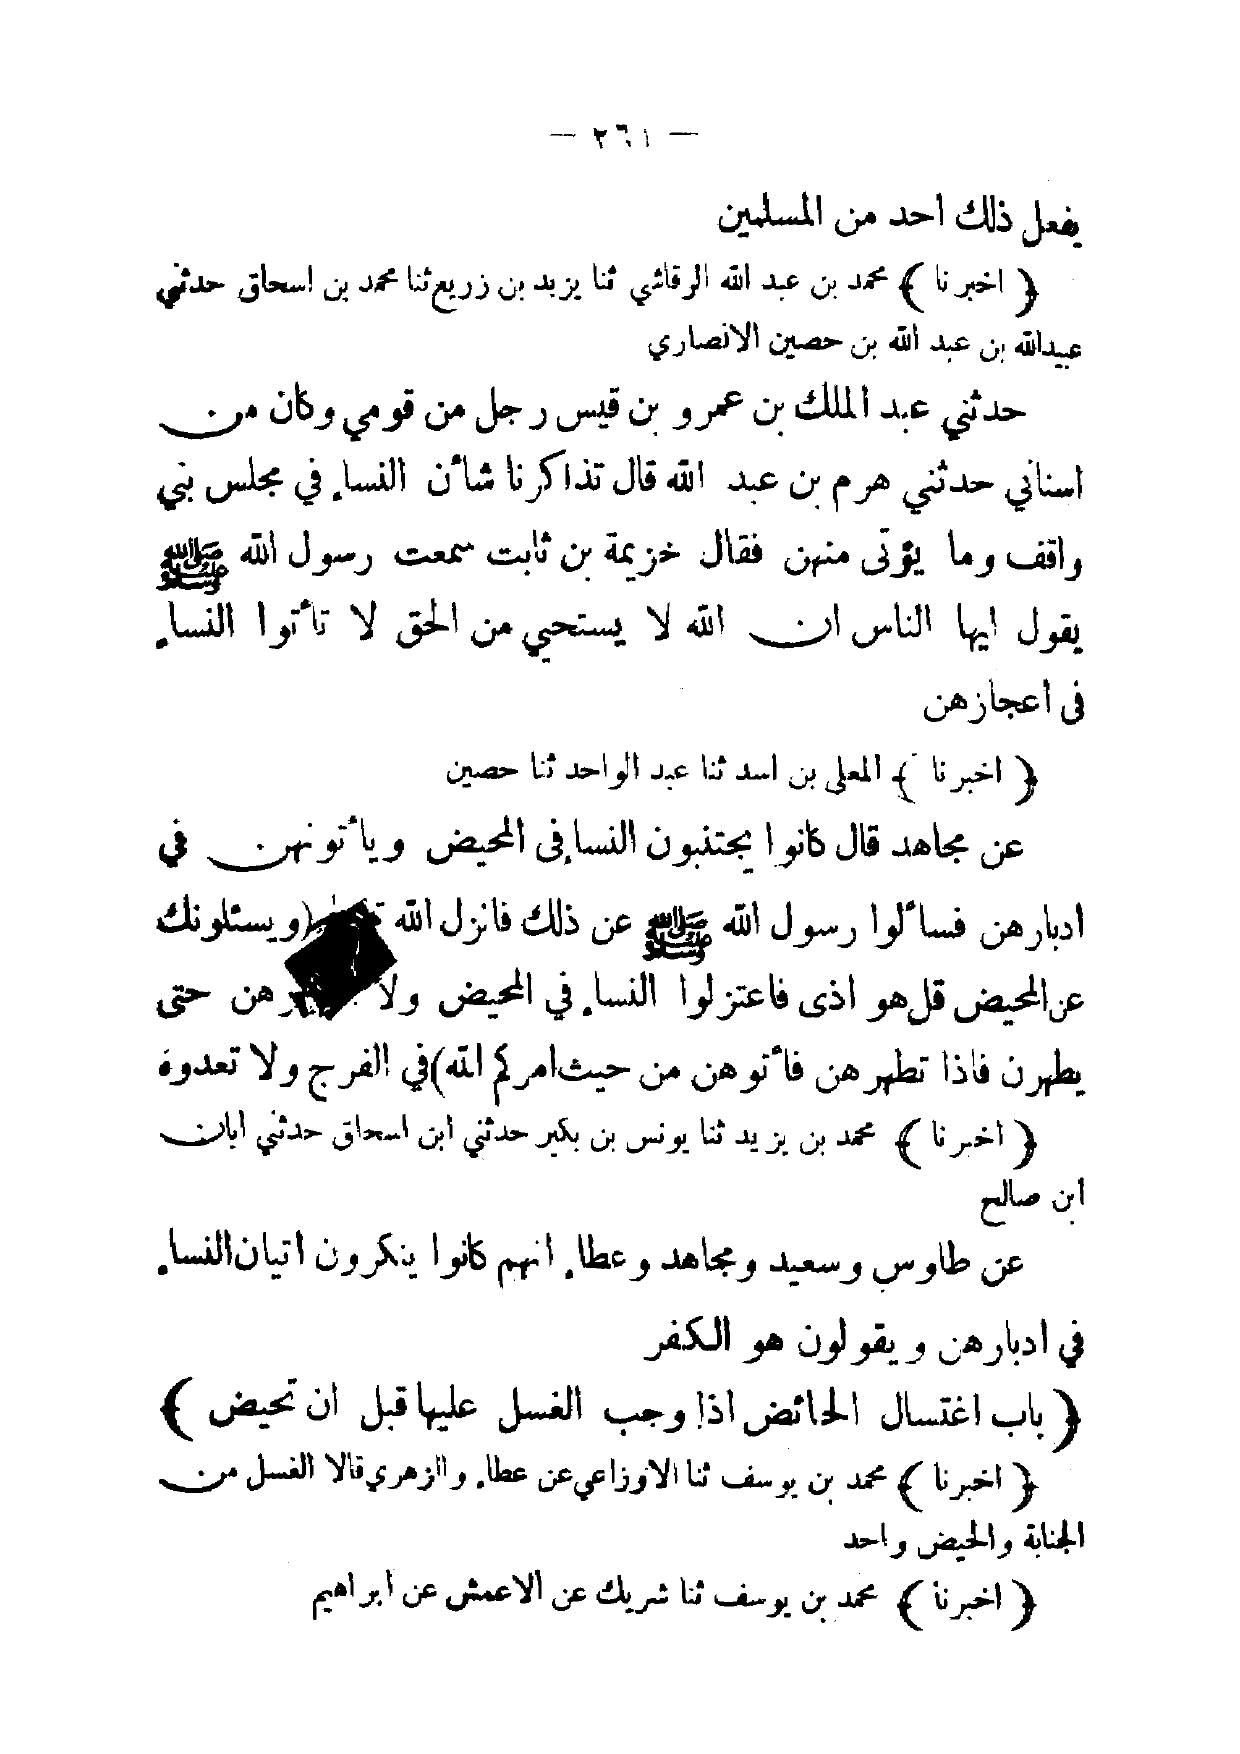 — ٢٦١ —
يفعل ذلك احد من المسلمين
﴿ اخبرنا ﴾ محمد بن عبد الله الرقائي ثنا يزيد بن زريع ثنا محمد بن اسحاق حدثني
عبيدالله بن عبد الله بن حصين الانصاري
حدثني عبد الملك بن عمرو بن قيس رجل من قومي وكان من
اسناني حدثني هرم بن عبد الله قال تذاكرنا شأن النساء في مجلس بني
واقف وما يؤتى منهن فقال خزيمة بن ثابت سمعت رسول الله ﷺ
يقول ايها الناس ان الله لا يستحيي من الحق لا تأتوا النساء
فى اعجازهن
﴿ اخبرنا ﴾ المعلى بن اسد ثنا عبد الواحد ثنا حصين
عن مجاهد قال كانوا يجتنبون النساء فى المحيض ويأتونهن في
ادبارهن فسألوا رسول الله ﷺ عن ذلك فانزل الله (ويسئلونك
عن المحيض قل هو اذى فاعتزلوا النساء في المحيض ولا حتى
يطهرن فاذا تطهرهن فأتوهن من حيث امركم الله) في الفرج ولا تعدوه
﴿ اخبرنا ﴾ محمد بن يزيد ثنا يونس بن بكير حدثني ابن اسحاق حدثني ابان
ابن صالح
عن طاوس وسعيد ومجاهد وعطاء انهم كانوا ينكرون اتيان النساء
في ادبارهن ويقولون هو الكفر
﴿ باب اغتسال الحائض اذا وجب الغسل عليها قبل ان تحيض ﴾
﴿ اخبرنا ﴾ محمد بن يوسف ثنا الاوزاعي عن عطاء والزهري قالا الغسل من
الجنابة والحيض واحد
﴿ اخبرنا ﴾ محمد بن يوسف ثنا شريك عن الاعمش عن ابراهيم